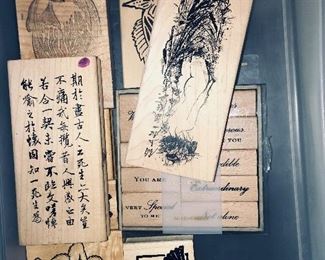 期於盡古人云死生亦大矣豈
不痛哉每攬昔人興感之由
若合一契未嘗不臨文嗟悼不
能喻之於懷固知一死生為
YOU ARE
Extraordinary
VERY Special
TO ME
not alone